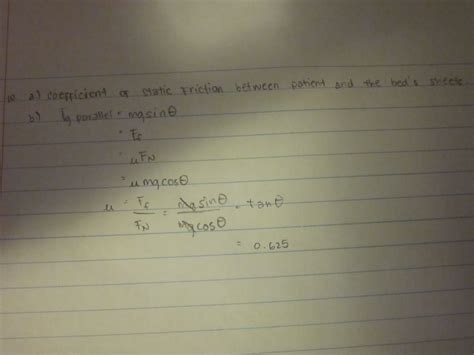 10. a) coefficient of static friction between patient and the bed's sheets
b) Fg parallel = mgsinθ
= Fs
= μFN
= μmgcosθ
μ = Fs/FN = mgsinθ/mgcosθ = tanθ
= 0.625